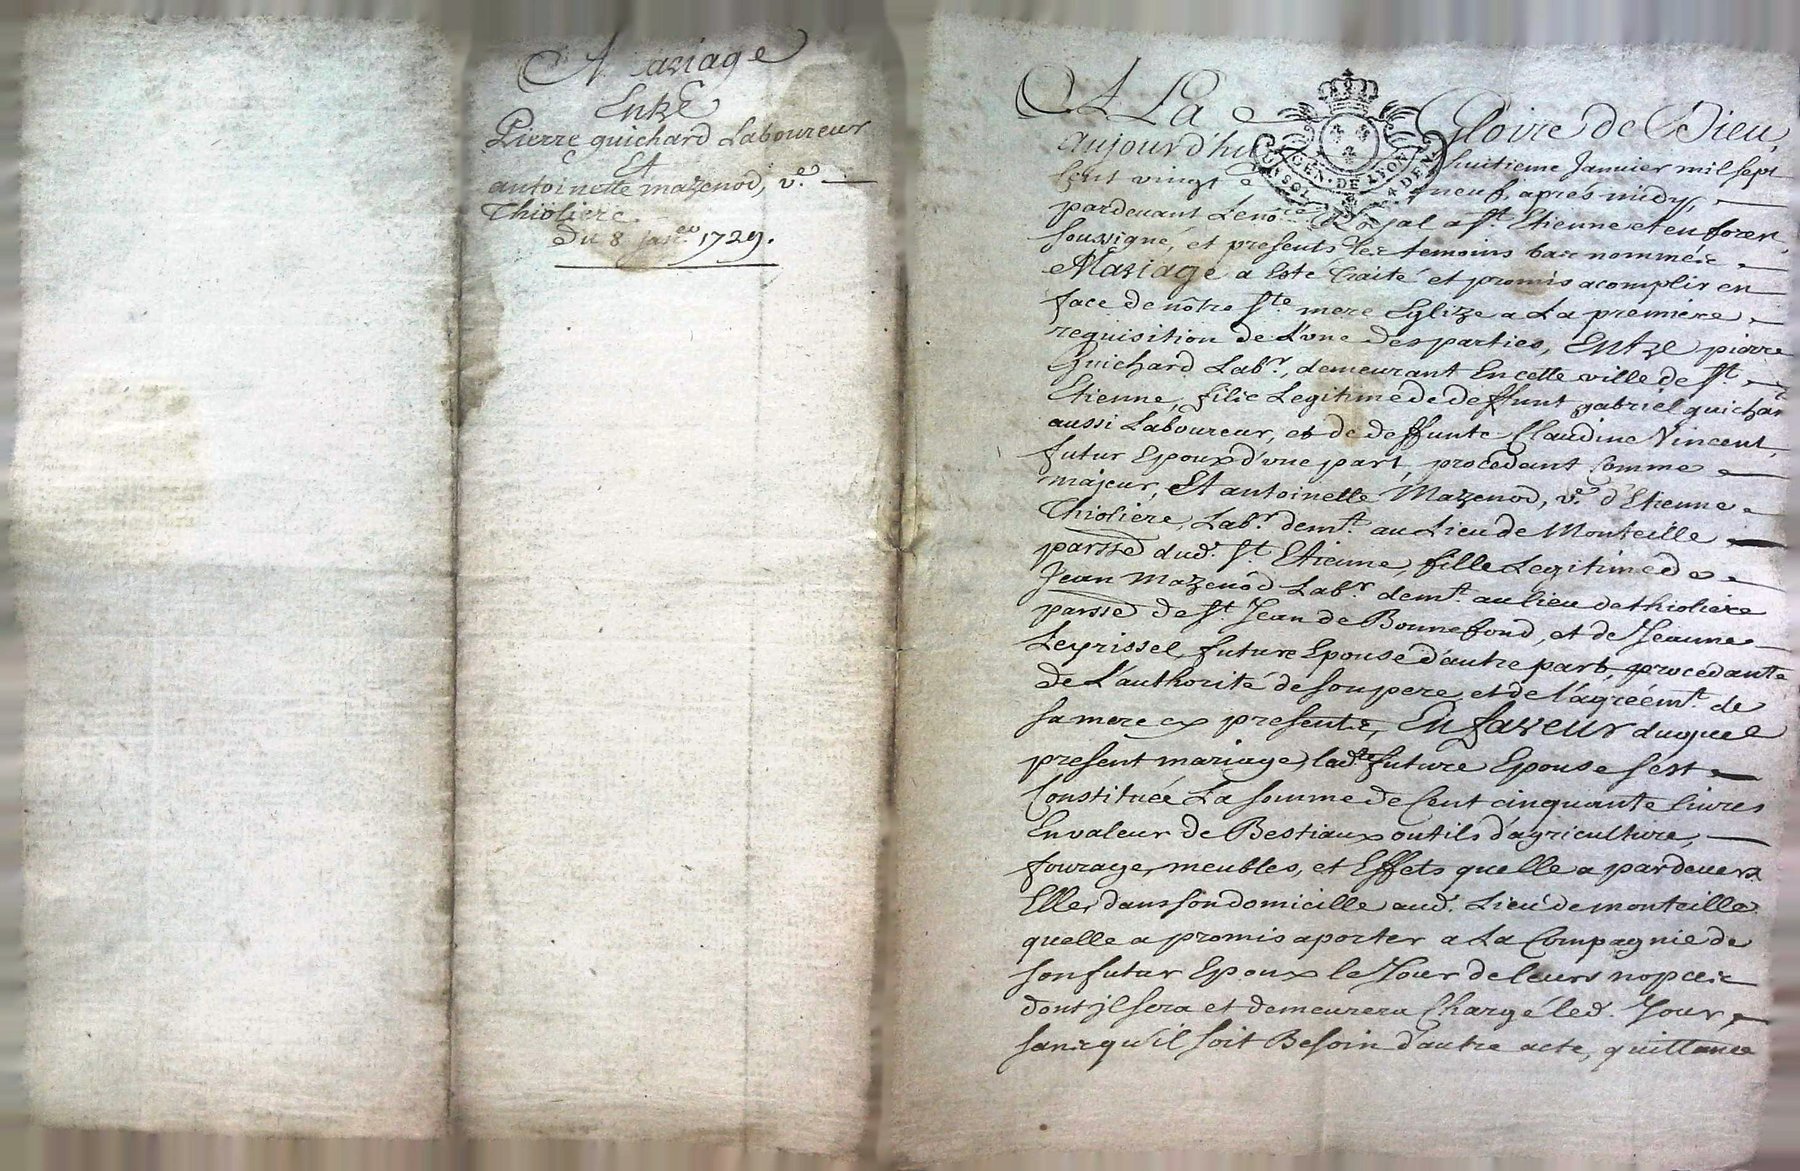 Mariage
Entre
Pierre guichard Laboureur
Et
antoinette mazenod, v.e
Thioliere.
Du 8 janer. 1729.
A La Gloire de Dieu,
GEN. DE LYON
4 DEN
aujourd'hui huitieme Janvier mil sept
Cent vingt neuf, aprés midy,
pardevant Le no.re Royal a St. Etienne et en forez,
soussigné, et presents Les temoins bas nommés
Mariage a Este Traité et promis acomplir en
face de nôtre Ste. mere Eglize a La premiere
requisition de L'une des parties, Entre pierre
Guichard Labr., demeurant En cette ville de St.
Etienne, filz Legitime de deffunt gabriel guichard
aussi Laboureur, et de deffunte Claudine Vincent,
futur Epoux d'une part, procedant Comme
majeur, Et antoinette Mazenod, v.e d'Etienne
Thioliere, Labr. demt. au Lieu de Monteille
parsse dud. St. Etienne, fille Legitime de
Jean Mazenod Labr. demt. au lieu de thioliere
parsse de St. Jean de Bonnefond, et de Jeanne
Leyrissel, future Epouse d'autre part, procedante
de L'authorité de son pere, et de l'agréemt. de
sa mere cy presente, En faveur duquel
present mariage, lad.te future Epouse s'est
Constituée La somme de Cent cinquante livres
En valeur de Bestiaux outils d'agriculture,
fourage, meubles, et Effets quelle a pardevers
Elle, dans son domicille aud. Lieu de monteille
quelle a promis aporter a La Compagnie de
son futur Epoux le Jour de leurs nopces
dont jl sera et demeurera Chargé led. Jour,
sans qu'il soit Besoin d'autre acte, quittance